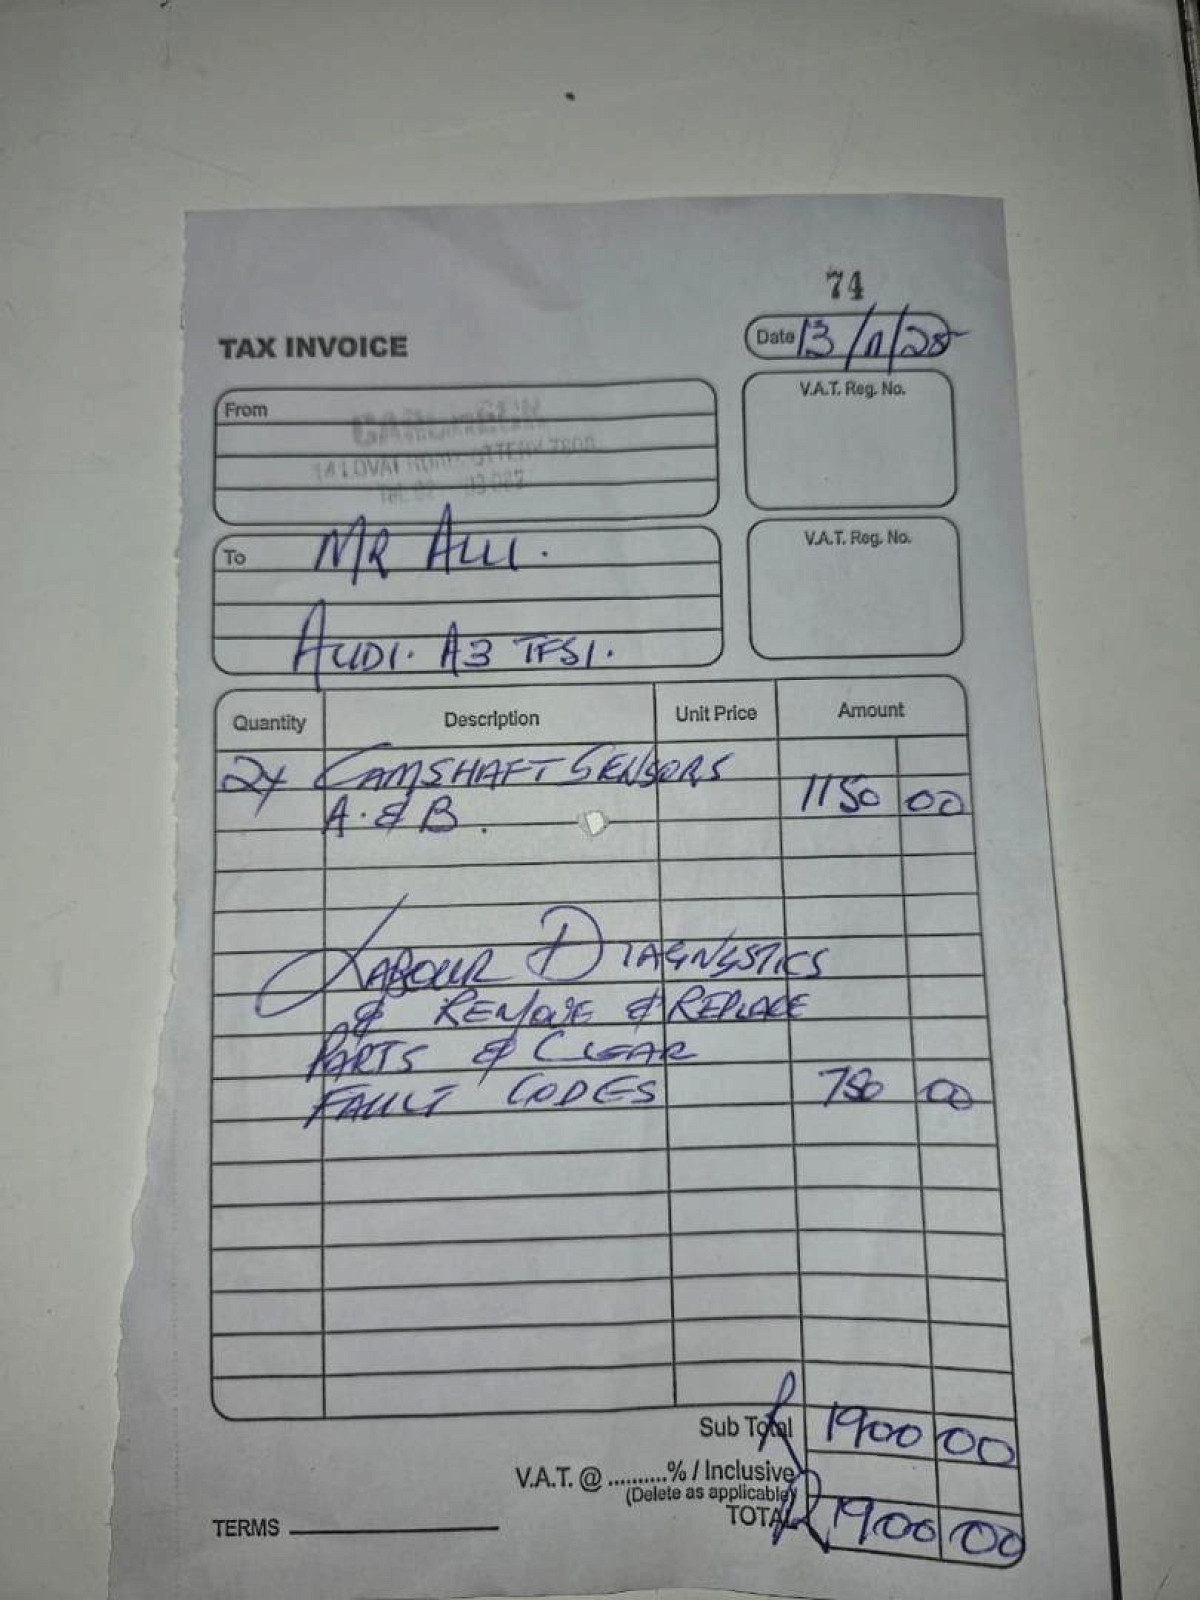 74
TAX INVOICE
Date 13/11/25
From
V.A.T. Reg. No.
To MR ALLI.
V.A.T. Reg. No.
AUDI. A3 TFSI.
Quantity Description Unit Price Amount
2x CAMSHAFT SENSORS
A. & B. 1150 00
LABOUR DIAGNSTICS
& REMOVE & REPLACE
PARTS & CLEAR
FAULT CODES 750 00
Sub Total R 1900 00
V.A.T. @ ..........% / Inclusive
(Delete as applicable)
TOTAL R 1900 00
TERMS